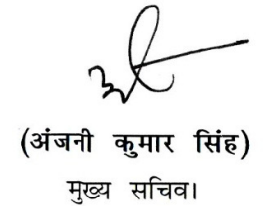 (अंजनी कुमार सिंह)
मुख्य सचिव।